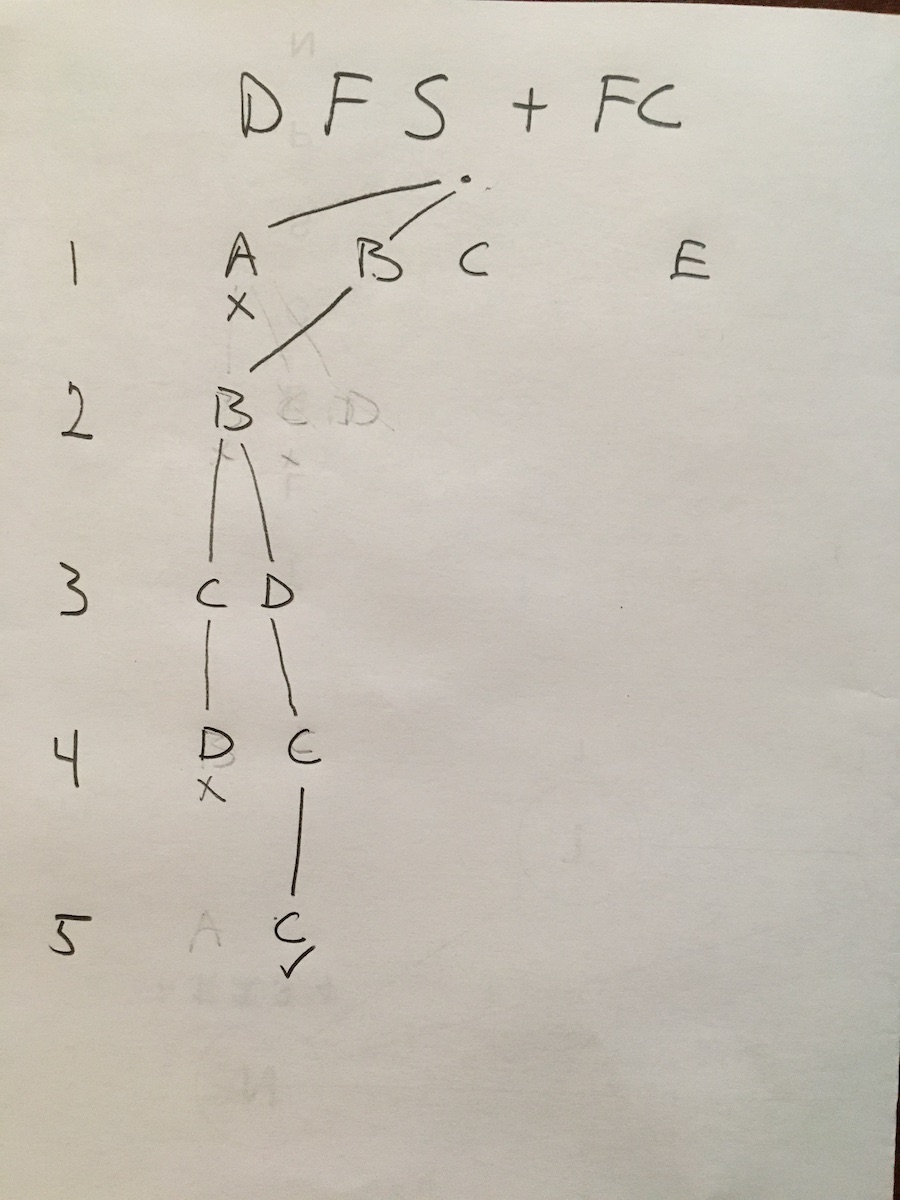 D F S + FC
1 A B C E
x
2 B
3 C D
4 D C
x
5 C
✓